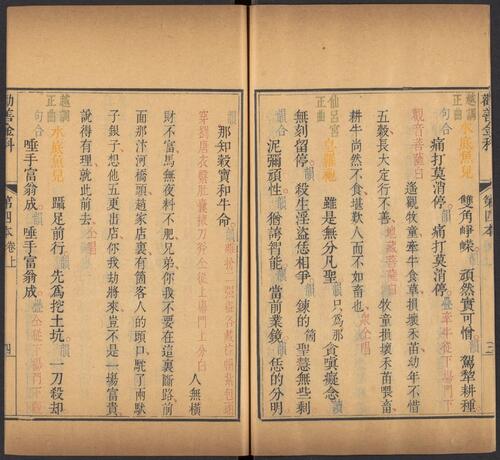 勸善金科
第四本卷上
越調正曲
水底魚兒
雙角崢嶸
頑然實可憎
駕犂耕種
句合
痛打莫消停
痛打莫消停
疊
牽牛從下場門下
觀音菩薩白
遙觀牧童牽牛食草損壞禾苗幼年不惜
五穀長大定行不善
地藏菩薩白
牧童損壞禾苗喂畜
耕牛尚然不食堪歎人而不如畜也
衆仝唱
仙呂宮正曲
皂羅袍
雖是無分凡聖
韻
只為那
貪嗔癡念
讀
無刻留停
韻
殺生淫盜恁相爭
韻
鍊的
箇
聖慧無些剩
韻合
泥彌頑性
韻
猶誇智能
韻
當前業鏡
韻
恁的分明
韻
那知穀寶和牛命
韻
穿劉唐衣繫肚囊執刀仝從上場門上分白
人無橫
財不富馬無夜料不肥兄弟你我不要在這裏斷路前
面那汴河橋頭趙家店裏有箇客人的頭口駝了兩䭾
子銀子想他五更出店你我劫將來豈不是一場富貴
說得有理就此前去
仝唱
越調正曲
水底魚兒
躡足前行
韻
先為挖土坑
韻
一刀殺却
句合
唾手富翁成
韻
唾手富翁成
疊
仝從下場門下
勸善金科
第四本卷上
四